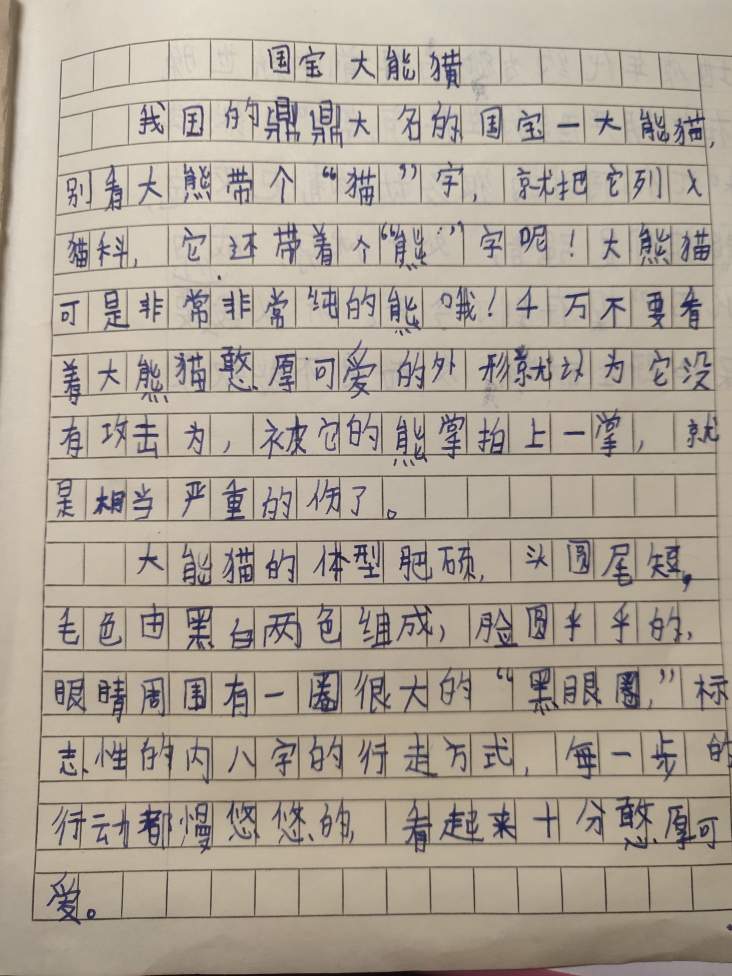 国宝大能猫
我国的鼎鼎大名的国宝一大能猫,
别看大熊带个“猫”字,就把它列入
猫科,它还带着个“熊”字呢!大熊猫
可是非常非常纯的能哦!千万不要看
着大熊猫憨厚可爱的外形就以为它没
有攻击为,被它的熊掌拍上一掌,就
是相当严重的伤了。
大能猫的体型肥硕,头圆尾短,
毛色由黑白两色组成,脸圆乎乎的,
眼睛周围有一圈很大的“黑眼圈,”标
志性的内八字的行走方式,每一步的
行动都慢悠悠的,看起来十分憨厚可
爱。